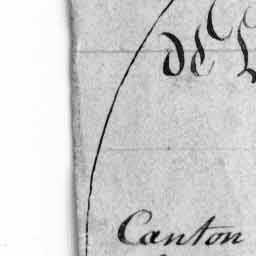 de
Canton